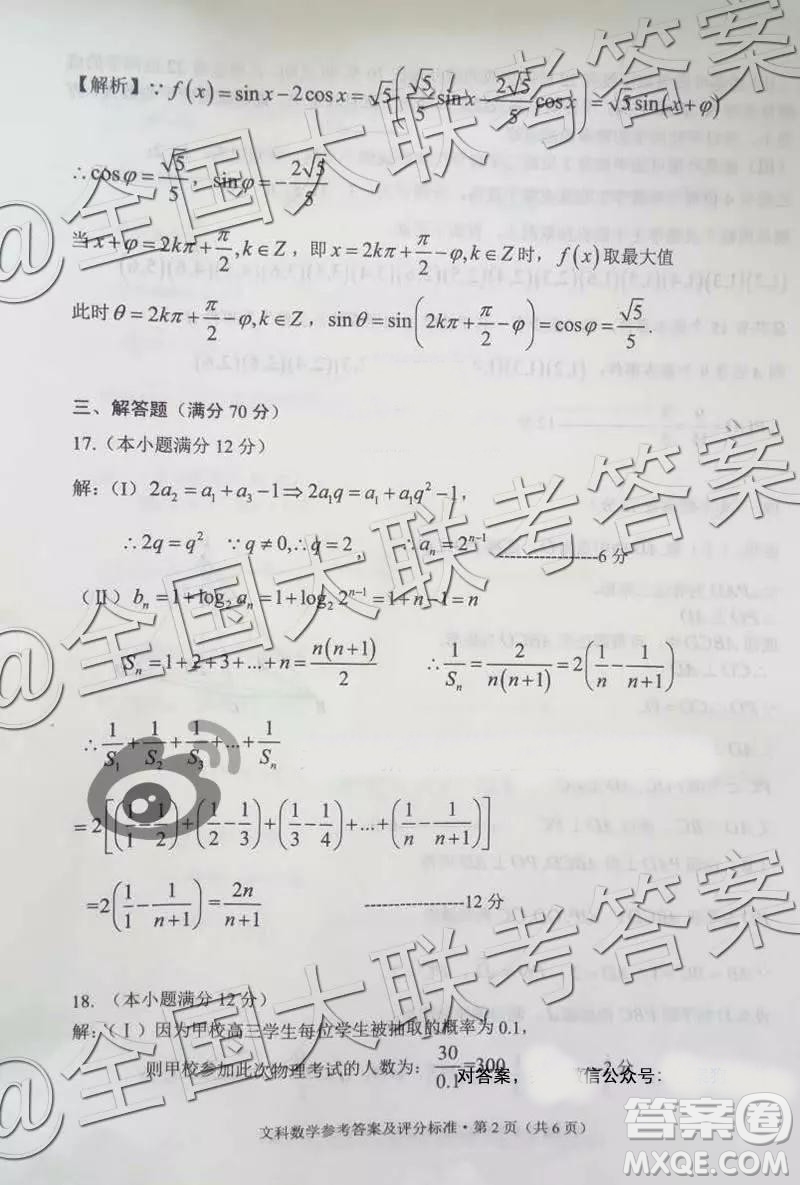 【解析】∵ f(x)=sinx-2cosx=√5(√5/5 sinx-2√5/5 cosx)=√5sin(x+φ)
∴cosφ=√5/5，sinφ=-2√5/5
当x+φ=2kπ+π/2,k∈Z，即x=2kπ+π/2-φ,k∈Z时，f(x)取最大值
此时θ=2kπ+π/2-φ,k∈Z，sinθ=sin(2kπ+π/2-φ)=cosφ=√5/5.
三、解答题（满分 70 分）
17.（本小题满分 12 分）
解：（I）2a₂=a₁+a₃-1⇒2a₁q=a₁+a₁q²-1，
∴2q=q² ∵q≠0,∴q=2， ∴aₙ=2ⁿ⁻¹ ------------------6 分
（Ⅱ）bₙ=1+log₂aₙ=1+log₂2ⁿ⁻¹=1+n-1=n
Sₙ=1+2+3+...+n=n(n+1)/2 ∴1/Sₙ=2/n(n+1)=2(1/n-1/(n+1))
∴1/S₁+1/S₂+1/S₃+...+1/Sₙ
=2[(1/1-1/2)+(1/2-1/3)+(1/3-1/4)+...+(1/n-1/(n+1))]
=2(1/1-1/(n+1))=2n/(n+1) ------------------12 分
18. （本小题满分 12 分）
解：（Ⅰ）因为甲校高三学生每位学生被抽取的概率为 0.1,
则甲校参加此次物理考试的人数为：30/0.1=300 2 分
对答案， 信公众号：
文科数学参考答案及评分标准·第 2 页（共 6 页）
@全国大联考答案
@全国大联考答案
@全国大联考答案
答案圈
MXQE.COM